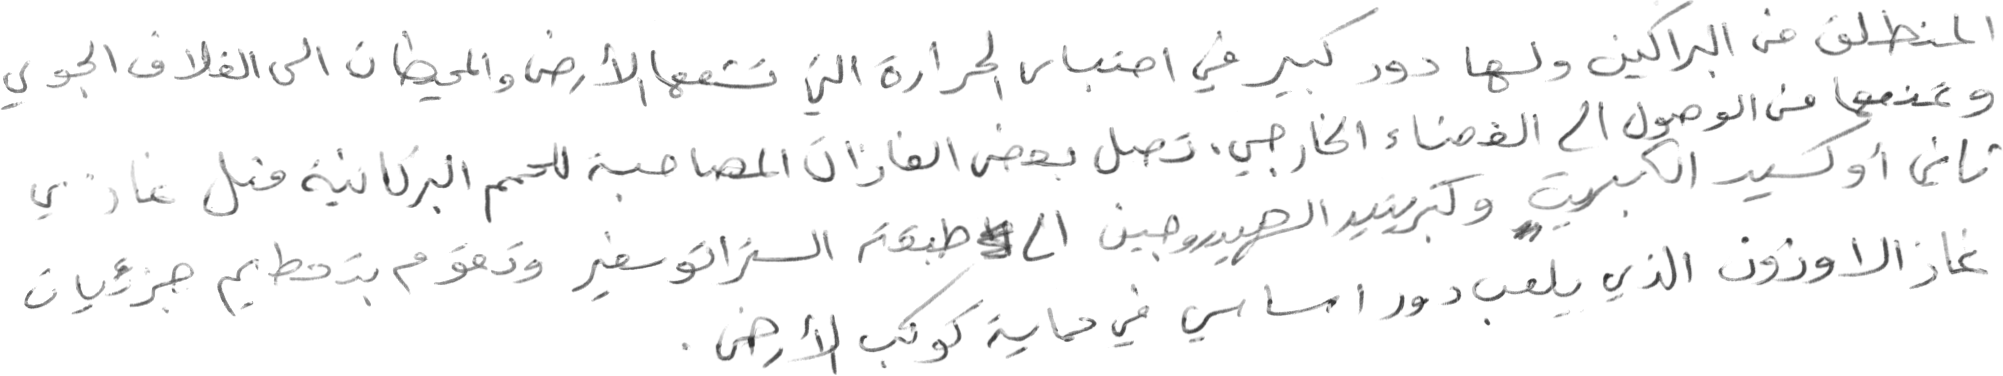 المنطلق من البراكين ولها دور كبير في احتباس الحرارة التي تشعها الأرض والمحيطات الى الغلاف الجوي
وتمنعها من الوصول الى الفضاء الخارجي. تصل بعض الغازات المصاحبة للحمم البركانية مثل غازي
ثاني أوكسيد الكبريت وكبريتيد الهيدروجين الى طبقة الستراتوسفير وتقوم بتحطيم جزئيات
غاز الاوزون الذي يلعب دور اساسي في حماية كوكب الأرض .